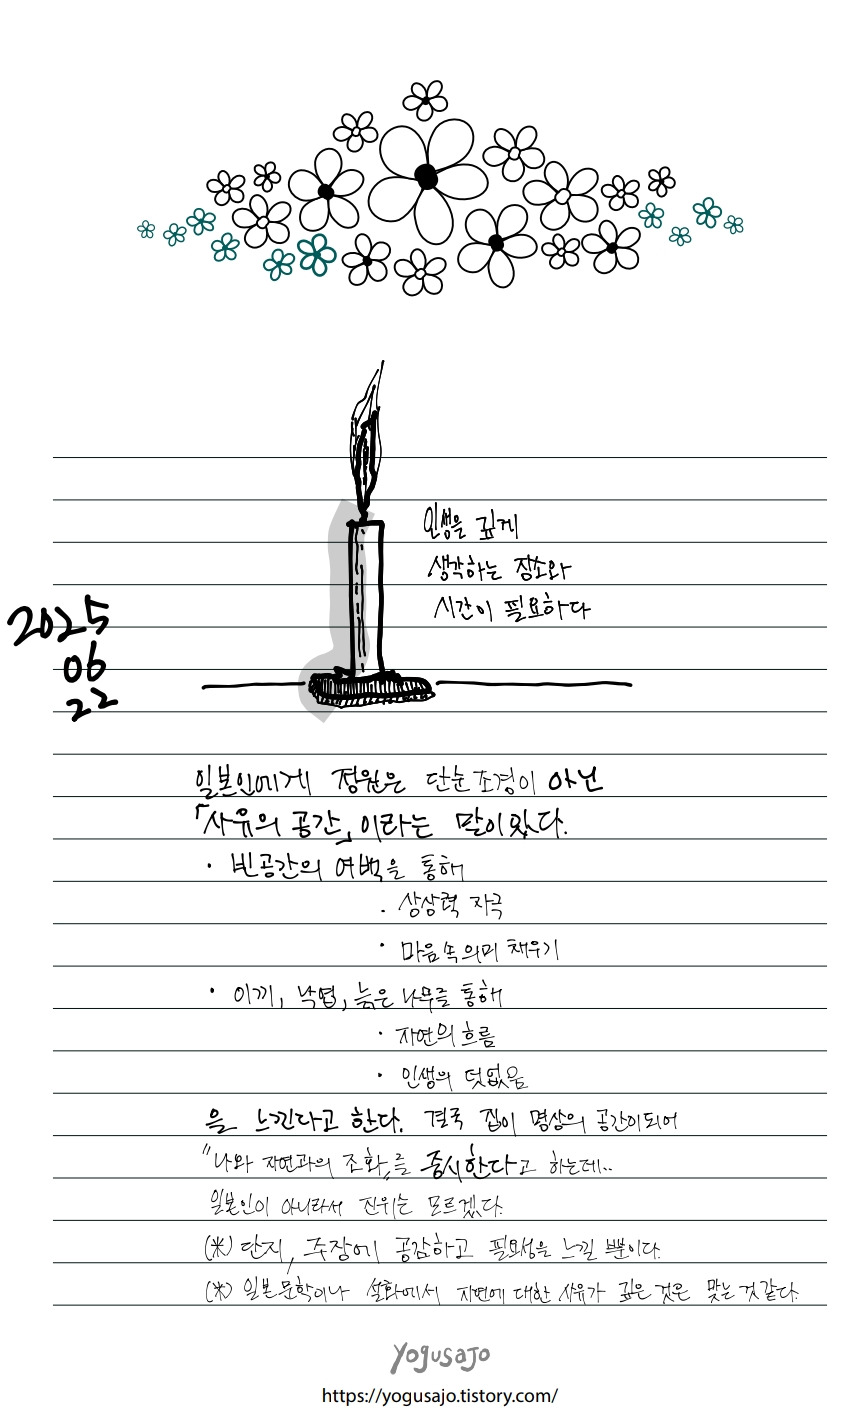 인생을 깊게
생각하는 장소와
시간이 필요하다
2025
06
22
일본인에게 정원은 단순 조경이 아닌
「사유의 공간」이라는 말이 있다.
· 빈공간의 여백을 통해
· 상상력 자극
· 마음 속 의미 채우기
· 이끼, 낙엽, 늙은 나무를 통해
· 자연의 흐름
· 인생의 덧없음
을 느낀다고 한다. 결국 집이 명상의 공간이 되어
"나와 자연과의 조화"를 중시한다고 하는데..
일본인이 아니라서 진위는 모르겠다.
(米) 단지, 주장에 공감하고 필요성을 느낄 뿐이다.
(米) 일본 문학이나 설화에서 자연에 대한 사유가 깊은 것은 맞는 것 같다.
yogusajo
https://yogusajo.tistory.com/